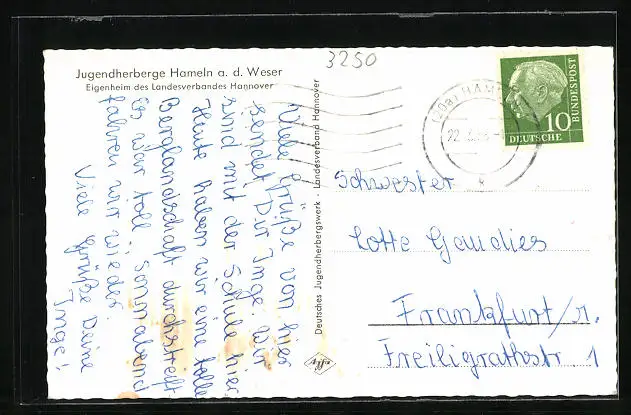 3250
Jugendherberge Hameln a. d. Weser
Eigenheim des Landesverbandes Hannover
Viele Grüße von hier
sendet Dir Inge. Wir
sind mit der Schule hier
Heute haben wir eine tolle
Berglandschaft durchstreift
Es war toll. Sonnabend
fahren wir wieder.
Viele Grüße Deine
Inge!
Deutsches Jugendherbergswerk · Landesverband Hannover
(20a) HAM
22. 3.
10
DEUTSCHE
BUNDESPOST
Schwester
Lotte Gaudies
Frankfurt/M.
Freiligrathstr 1